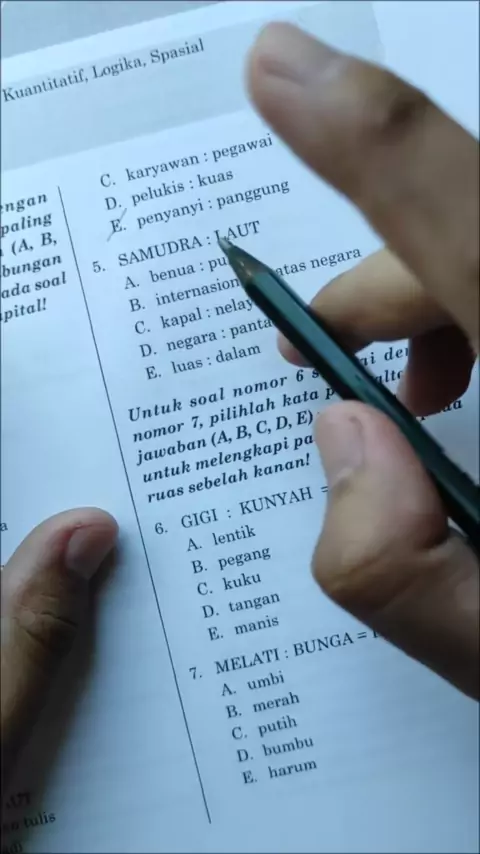 Kuantitatif, Logika, Spasial
ngan
paling
(A, B,
bungan
ada soal
pital!
C. karyawan : pegawai
D. pelukis : kuas
E. penyanyi : panggung
5. SAMUDRA : LAUT
A. benua :
B. atas negara
C. kapal :
D. negara :
E. luas : dalam
Untuk soal nomor 6
nomor 7, pilihlah kata
jawaban (A, B, C, D, E)
untuk melengkapi
ruas sebelah kanan!
6. GIGI : KUNYAH =
A. lentik
B. pegang
C. kuku
D. tangan
E. manis
7. MELATI : BUNGA =
A. umbi
B. merah
C. putih
D. bumbu
E. harum
tulis